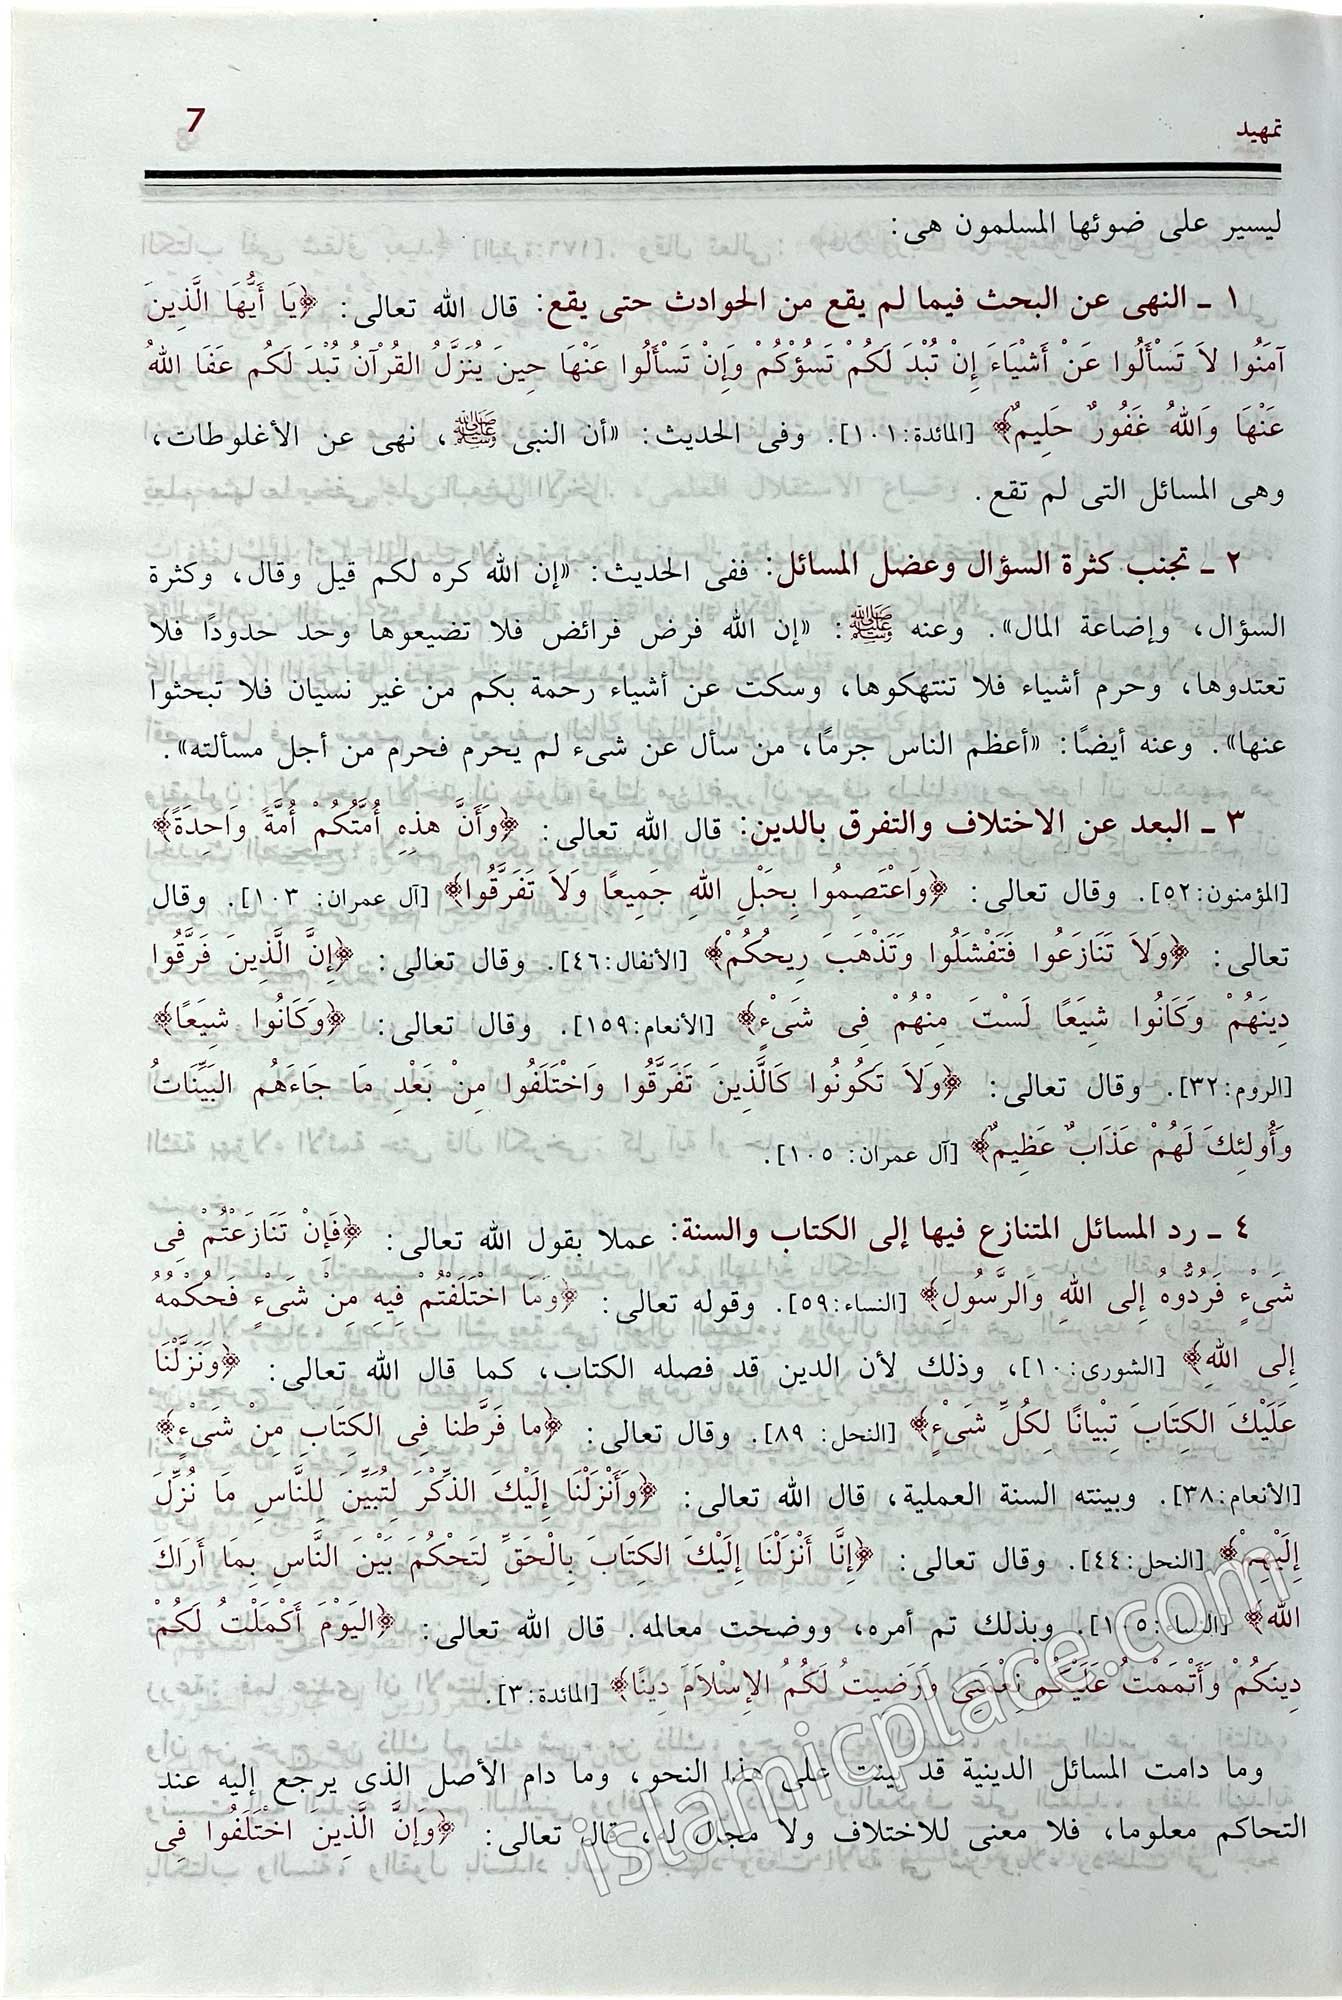 تمهيد 7
ليسير على ضوئها المسلمون هى:
١ ـ النهى عن البحث فيما لم يقع من الحوادث حتى يقع: قال الله تعالى: ﴿يَا أَيُّهَا الَّذِينَ
آمَنُوا لاَ تَسْأَلُوا عَنْ أَشْيَاءَ إِنْ تُبْدَ لَكُمْ تَسُؤْكُمْ وَإِنْ تَسْأَلُوا عَنْهَا حِينَ يُنَزَّلُ القُرْآنُ تُبْدَ لَكُم عَفَا اللهُ
عَنْهَا وَاللهُ غَفُورٌ حَلِيمٌ﴾ [المائدة:١٠١]. وفى الحديث: «أن النبى ﷺ، نهى عن الأغلوطات،
وهى المسائل التى لم تقع.
٢ ـ تجنب كثرة السؤال وعضل المسائل: ففى الحديث: «إن الله كره لكم قيل وقال، وكثرة
السؤال، وإضاعة المال». وعنه ﷺ: «إن الله فرض فرائض فلا تضيعوها وحد حدودًا فلا
تعتدوها، وحرم أشياء فلا تنتهكوها، وسكت عن أشياء رحمة بكم من غير نسيان فلا تبحثوا
عنها». وعنه أيضًا: «أعظم الناس جرمًا، من سأل عن شىء لم يحرم فحرم من أجل مسألته».
٣ ـ البعد عن الاختلاف والتفرق بالدين: قال الله تعالى: ﴿وَأَنَّ هذِهِ أُمَّتُكُمْ أُمَّةً وَاحِدَةً﴾
[المؤمنون:٥٢]. وقال تعالى: ﴿وَاعْتَصِمُوا بِحَبْلِ اللهِ جَمِيعًا وَلاَ تَفَرَّقُوا﴾ [آل عمران: ١٠٣]. وقال
تعالى: ﴿وَلاَ تَنَازَعُوا فَتَفْشَلُوا وَتَذْهَبَ رِيحُكُمْ﴾ [الأنفال:٤٦]. وقال تعالى: ﴿إِنَّ الَّذِينَ فَرَّقُوا
دِينَهُمْ وَكَانُوا شِيَعًا لَسْتَ مِنْهُمْ فِى شَىْءٍ﴾ [الأنعام:١٥٩]. وقال تعالى: ﴿وَكَانُوا شِيَعًا﴾
[الروم:٣٢]. وقال تعالى: ﴿وَلاَ تَكُونُوا كَالَّذِينَ تَفَرَّقُوا وَاخْتَلَفُوا مِنْ بَعْدِ مَا جَاءَهُم البَيِّنَاتُ
وَأُولئِكَ لَهُمْ عَذَابٌ عَظِيمٌ﴾ [آل عمران: ١٠٥].
٤ ـ رد المسائل المتنازع فيها إلى الكتاب والسنة: عملا بقول الله تعالى: ﴿فَإِنْ تَنَازَعْتُمْ فِى
شَىْءٍ فَرُدُّوهُ إِلى اللهِ وَالرَّسُولِ﴾ [النساء:٥٩]. وقوله تعالى: ﴿وَمَا اخْتَلَفْتُمْ فِيهِ مِنْ شَىْءٍ فَحُكْمُهُ
إِلى اللهِ﴾ [الشورى:١٠]، وذلك لأن الدين قد فصله الكتاب، كما قال الله تعالى: ﴿وَنَزَّلْنَا
عَلَيْكَ الكِتَابَ تِبْيَانًا لِكُلِّ شَىْءٍ﴾ [النحل: ٨٩]. وقال تعالى: ﴿ما فَرَّطنا فِى الكِتَابِ مِنْ شَىْءٍ﴾
[الأنعام:٣٨]. وبينته السنة العملية، قال الله تعالى: ﴿وَأَنْزَلْنَا إِلَيْكَ الذِّكْرَ لِتُبَيِّنَ لِلنَّاسِ مَا نُزِّلَ
إِلَيْهِمْ﴾ [النحل:٤٤]. وقال تعالى: ﴿إِنَّا أَنْزَلْنَا إِلَيْكَ الكِتَابَ بِالْحَقِّ لِتَحْكُمَ بَيْنَ النَّاسِ بِمَا أَرَاكَ
الله﴾ [النساء:١٠٥]. وبذلك تم أمره، ووضحت معالمه. قال الله تعالى: ﴿اليَوْمَ أَكْمَلْتُ لَكُمْ
دِينَكُمْ وَأَتْمَمْتُ عَلَيْكُمْ نِعْمَتِى وَرَضِيتُ لَكُمُ الإِسْلاَمَ دِينًا﴾ [المائدة:٣].
وما دامت المسائل الدينية قد بينت على هذا النحو، وما دام الأصل الذى يرجع إليه عند
التحاكم معلوما، فلا معنى للاختلاف ولا مجال له، قال تعالى: ﴿وَإِنَّ الَّذِينَ اخْتَلَفُوا فِى
islamicplace.com